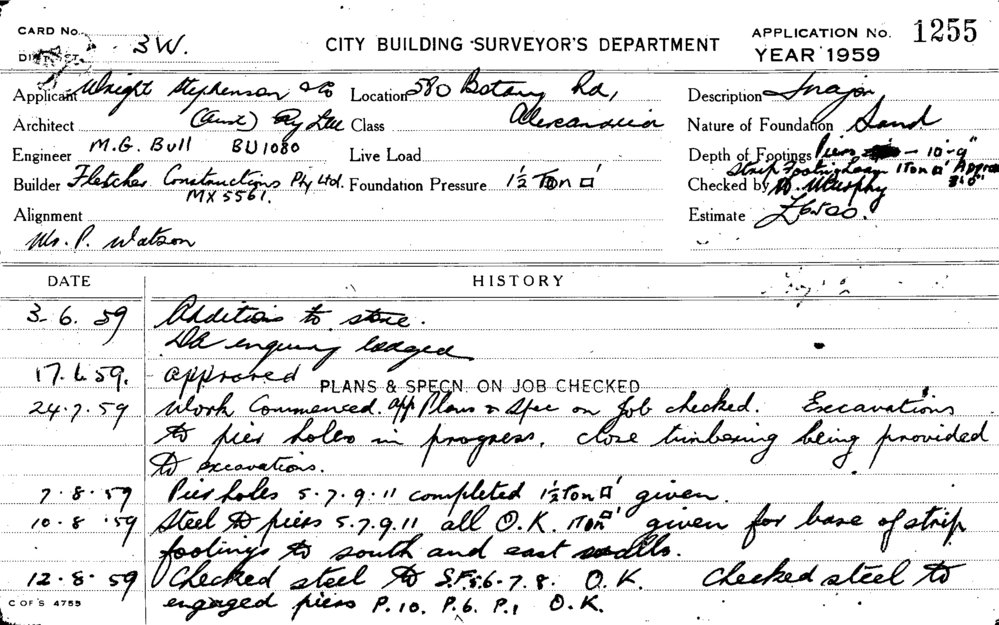 CARD No.
DISTRICT 3W.
CITY BUILDING SURVEYOR'S DEPARTMENT
APPLICATION No. 1255
YEAR 1959
Applicant Wright Stephenson & Co Location 580 Botany Rd,
(Aust) Pty Ltd Alexandria
Description Major
Architect Class Nature of Foundation Sand
Engineer M.G. Bull BU1080 Live Load Depth of Footings Piers - 10'-9"
Strip Footings 1 Ton □' Approx 3'0"
Builder Fletcher Constructions Pty Ltd. Foundation Pressure 1½ Ton □' Checked by Murphy
MX 5561.
Alignment Estimate £6500
Mr. P. Watson
DATE HISTORY
3-6.59 Additions to store.
DA enquiry lodged
17.6.59. approved
PLANS & SPECN. ON JOB CHECKED
24.7.59 Work Commenced. App Plans & Spec on Job checked. Excavations
to pier holes in progress, close timbering being provided
to excavations.
7.8.59 Pier holes 5.7.9.11 completed 1½ Ton □' given.
10.8.59 Steel to piers 5.7.9.11 all O.K. 1 Ton □' given for base of strip
footings to south and east walls.
12.8.59 Checked steel to S.F. 6-7.8. O.K. Checked steel to
C OF S 4755
engaged piers P.10. P.6. P.1 O.K.